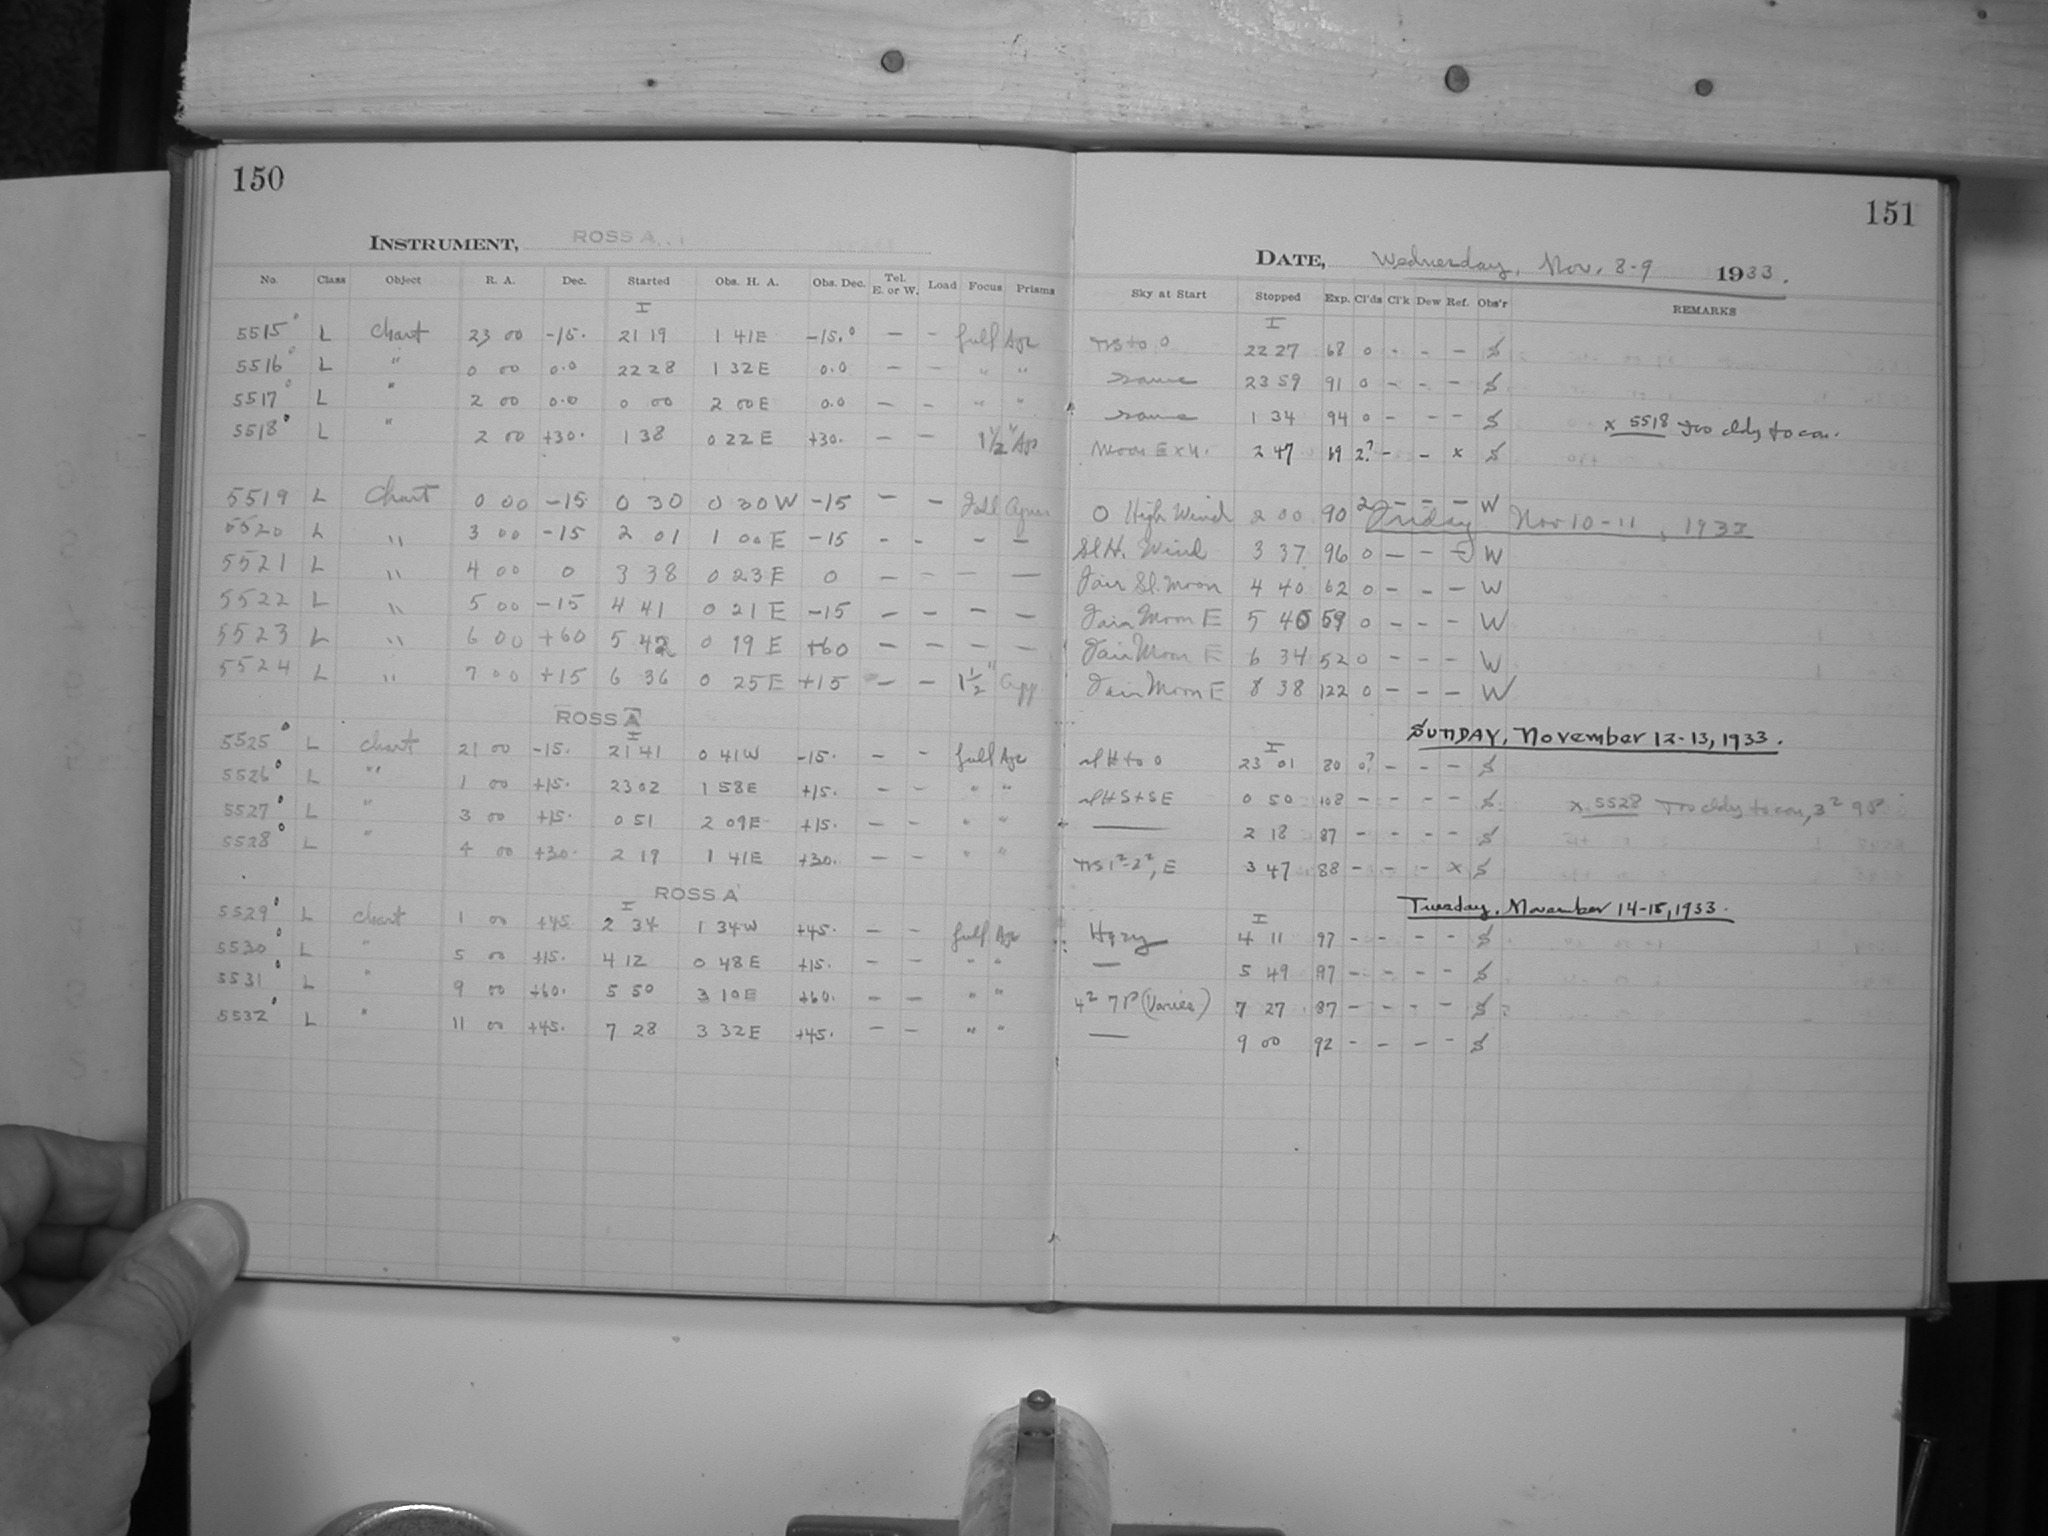 150
INSTRUMENT, ROSS A
No. Class Object R. A. Dec. Started Obs. H. A. Obs. Dec. Tel. E. or W. Load Focus Prisms
I
5515° L Chart 23 00 -15. 21 19 1 41E -15.° - - full Apr
5516° L " 0 00 0.0 22 28 1 32E 0.0 - - " "
5517° L " 2 00 0.0 0 00 2 00E 0.0 - - " "
5518° L " 2 00 +30. 1 38 0 22E +30. - - 1½" Apr
5519 L Chart 0 00 -15 0 30 0 30W -15 - - Full
5520 L " 3 00 -15 2 01 1 00E -15 - - - -
5521 L " 4 00 0 3 38 0 23E 0 - - - -
5522 L " 5 00 -15 4 41 0 21E -15 - - - -
5523 L " 6 00 +60 5 42 0 19E +60 - - - -
5524 L " 7 00 +15 6 36 0 25E +15 - - 1½"
ROSS A
I
5525° L Chart 21 00 -15. 21 41 0 41W -15. - - full Apr
5526° L " 1 00 +15. 23 02 1 58E +15. - - " "
5527° L " 3 00 +15. 0 51 2 09E +15. - - " "
5528° L " 4 00 +30. 2 19 1 41E +30. - - " "
ROSS A
I
5529° L Chart 1 00 +45. 2 34 1 34W +45. - - full Apr
5530° L " 5 00 +15. 4 12 0 48E +15. - - " "
5531° L " 9 00 +60. 5 50 3 10E +60. - - " "
5532° L " 11 00 +45. 7 28 3 32E +45. - - " "
151
DATE, Wednesday, Nov. 8-9 1933.
Sky at Start Stopped Exp. Cl'ds Cl'k Dew Ref. Obs'r REMARKS
I
to 0 22 27 68 0 - - - S
same 23 59 91 0 - - - S
same 1 34 94 0 - - - S
x 5518 Too cldy to con.
Moon E x 4. 2 47 69 2? - - x S
0 High Wind 2 00 90 2 - - - W
Friday Nov 10-11, 1933
Sl H. Wind 3 37 96 0 - - - W
Fair Sl. Moon 4 40 62 0 - - - W
Fair Moon E 5 40 59 0 - - - W
Fair Moon E 6 34 52 0 - - - W
Fair Moon E 8 38 122 0 - - - W
SUNDAY, November 12-13, 1933.
I
sl H to 0 23 01 80 0? - - - S
sl H S+SE 0 50 108 - - - - S
x 5528 Too cldy to con, 3² 9P
— 2 18 87 - - - - S
1²-2², E 3 47 88 - - - x S
Tuesday, November 14-15, 1933.
I
Hazy 4 11 97 - - - - S
— 5 49 97 - - - - S
4² 7P (Varies) 7 27 97 - - - - S
— 9 00 92 - - - - S